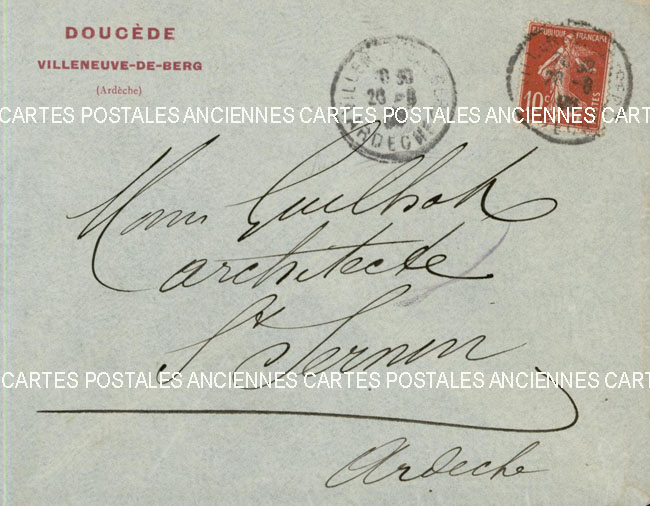 DOUCÈDE
VILLENEUVE-DE-BERG
(Ardèche)
REPUBLIQUE FRANÇAISE
10c POSTES
ARDECHE
CARTES POSTALES ANCIENNES CARTES POSTALES ANCIENNES CART
Mons
architecte
St Sernin
CARTES POSTALES ANCIENNES CARTES POSTALES ANCIENNES CART
Ardeche